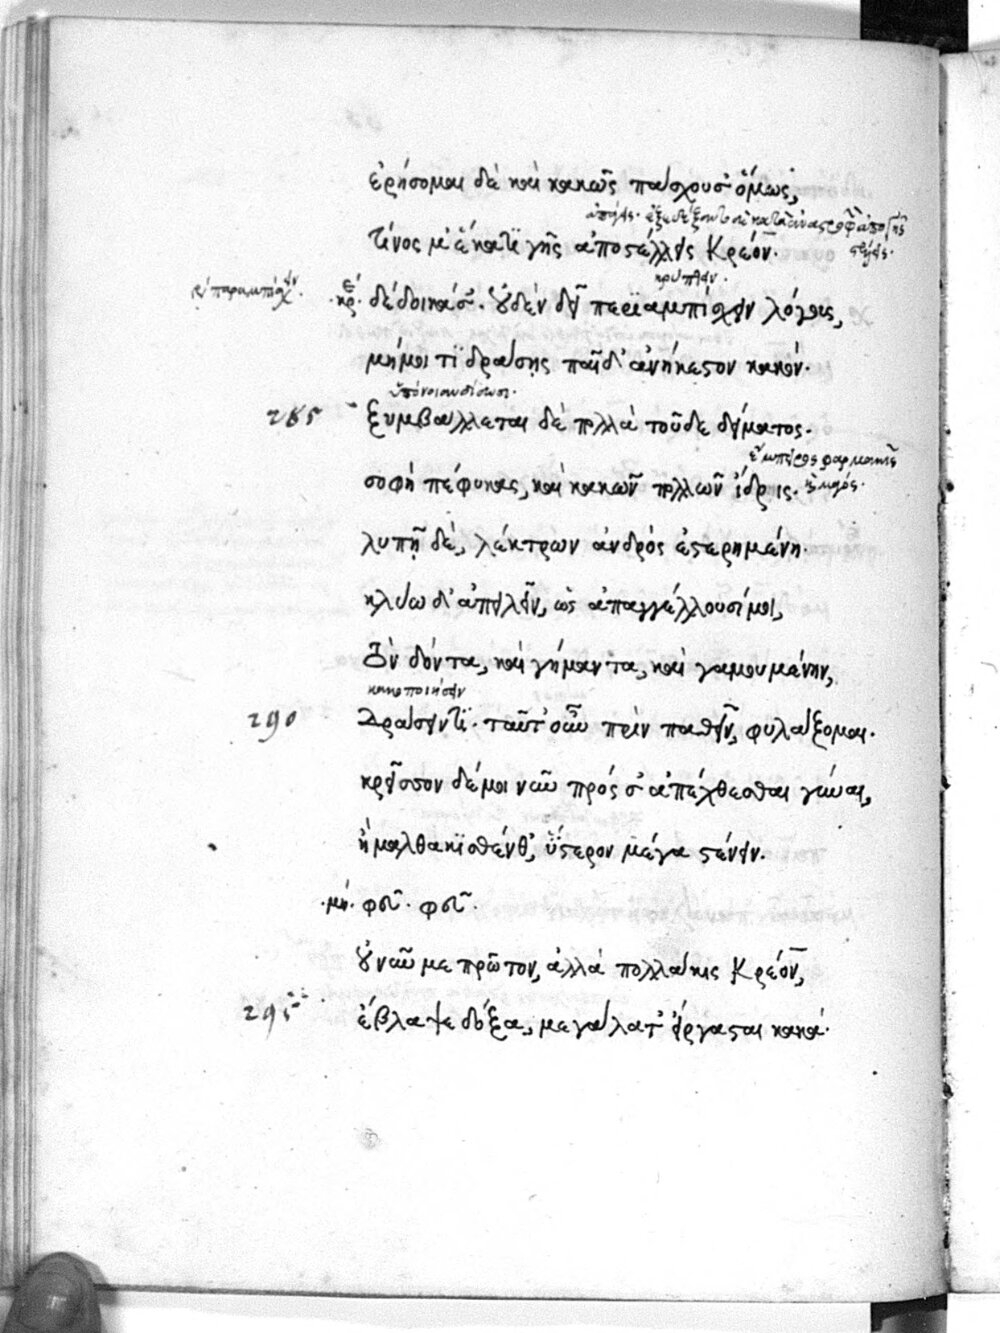 ἐρήσομαι δὲ καὶ κακῶς πάσχουσ' ὅμως,
τίνος μ' ἕκατι γῆς ἀποστέλλεις Κρέον.
κρύπτειν.
κρέ. δέδοικά σ'. οὐδὲν δεῖ περιαμπίσχειν λόγους,
μή μοι τὶ δράσῃς παῖδ' ἀνήκεστον κακόν.
285 ξυμβάλλεται δὲ πολλὰ τοῦδε δείματος.
ἔμπειρος φαρμακὶς
σοφὴ πέφυκας, καὶ κακῶν πολλῶν ἴδρις.
λυπῇ δὲ, λέκτρων ἀνδρὸς ἐστερημένη.
κλύω δ' ἀπειλεῖν, ὡς ἀπαγγέλλουσί μοι,
τὸν δόντα, καὶ γήμαντα, καὶ γαμουμένην,
κακοποιήσειν
290 Δράσειν τί. ταῦτ' οὖν πρὶν παθεῖν, φυλάξομαι.
κρεῖσσον δέ μοι νῦν πρός σ' ἀπέχθεσθαι γύναι,
ἢ μαλθακισθένθ', ὕστερον μέγα στένειν.
μη. φεῦ. φεῦ.
οὐ νῦν με πρῶτον, ἀλλὰ πολλάκις Κρέον,
295 ἔβλαψε δόξα, μεγάλα τ' εἴργασται κακά.